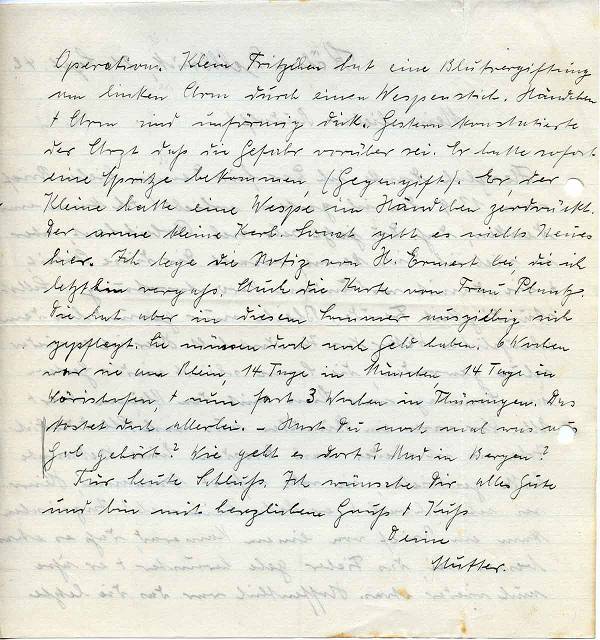 Operation. Klein Fritzchen hat eine Blutvergiftung
am linken Arm durch einen Wespenstich. Händchen
+ Arm sind unförmig dick. Gestern konstatierte
der Arzt daß die Gefahr vorüber sei. Er hatte sofort
eine Spritze bekommen, (Gegengift). Er, der
Kleine hatte eine Wespe im Händchen zerdrückt.
Der arme kleine Kerl. Sonst gibt es nichts Neues
hier. Ich lege die Notiz von H. Ernert bei, die ich
letzthin vergaß. Auch die Karte von Frau
Die hat aber in diesem Sommer ausgiebig sich
gepflegt. Sie müssen doch noch Geld haben. 6 Wochen
war sie am Rhein, 14 Tage in München, 14 Tage in
Wörishofen, + nun fast 3 Wochen in Thüringen. Das
kostet doch allerlei. – Hast Du noch mal was aus
gehört? Wie geht es dort? Und in Bergen?
Für heute Schluß. Ich wünsche Dir alles Gute
und bin mit herzlichem Gruß + Kuß
Deine
Mutter.